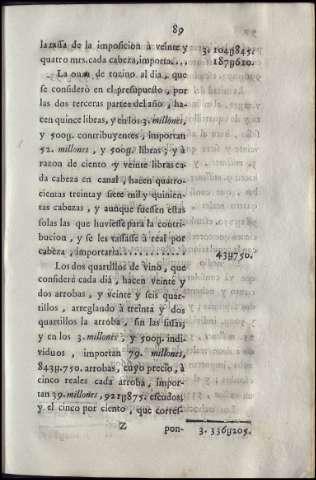 89
la tassa de la imposicion à veinte y 3. 104y845.
quatro mrs. cada cabeza, importa.... 187y610.
La onza de tozino al dia, que
se considerò en el presupuesto, por
las dos terceras partes del año, ha-
cen quince libras, y en los 3. millones,
y 500y. contribuyentes, importan
52. millones, y 500y. libras; y à
razon de ciento y veinte libras ca-
da cabeza en canal, hacen quatro-
cientas treinta y siete mil y quinien-
tas cabezas, y aunque fuessen estas
solas las que huviesse para la contri-
bucion, y se les tassasse à real por
cabeza, importaria............... 43y750.
Los dos quartillos de vino, que
considerè cada dia, hacen veinte y
dos arrobas, y veinte y seis quar-
tillos, arreglando à treinta y dos
quartillos la arroba, sin las sisas;
y en los 3. millones, y 500y. indi-
viduos, importan 79. millones,
843y.750. arrobas, cuyo precio, à
cinco reales cada arroba, impor-
tan 39. millones, 921y875. escudos;
y el cinco por ciento, que corres-
Z pon- 3. 336y205.